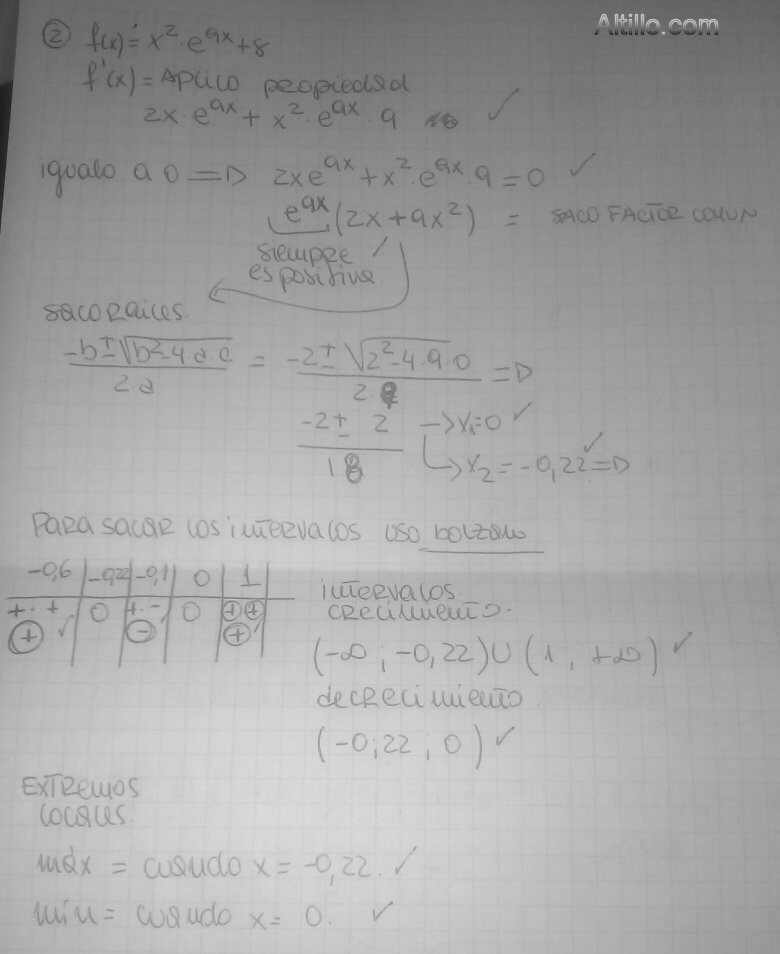 Altillo.com
② f(x) = x² · e^9x + 8
f'(x) = Aplico propiedad
2x · e^9x + x² · e^9x · 9 ✓
igualo a 0 ⇒ 2xe^9x + x² · e^9x · 9 = 0 ✓
e^9x (2x + 9x²) = SACO FACTOR COMUN
siempre
es positiva
saco raices
-b ± √b² - 4 a c / 2 a = -2 ± √2² - 4 · 9 · 0 / 2 · 9 ⇒
-2 ± 2 / 18 → x₁ = 0 ✓
→ x₂ = -0,22 ⇒ ✓
PARA sacar los intervalos uso bolzano
-0,6 | -0,22 | -0,1 | 0 | 1
+ · + | 0 | + · - | 0 | + +
+ ✓ | - | +
intervalos
crecimiento.
(-∞ ; -0,22) U (1 , +∞) ✓
decrecimiento
(-0,22 , 0) ✓
EXTREMOS
locales
máx = cuando x = -0,22. ✓
min = cuando x = 0. ✓